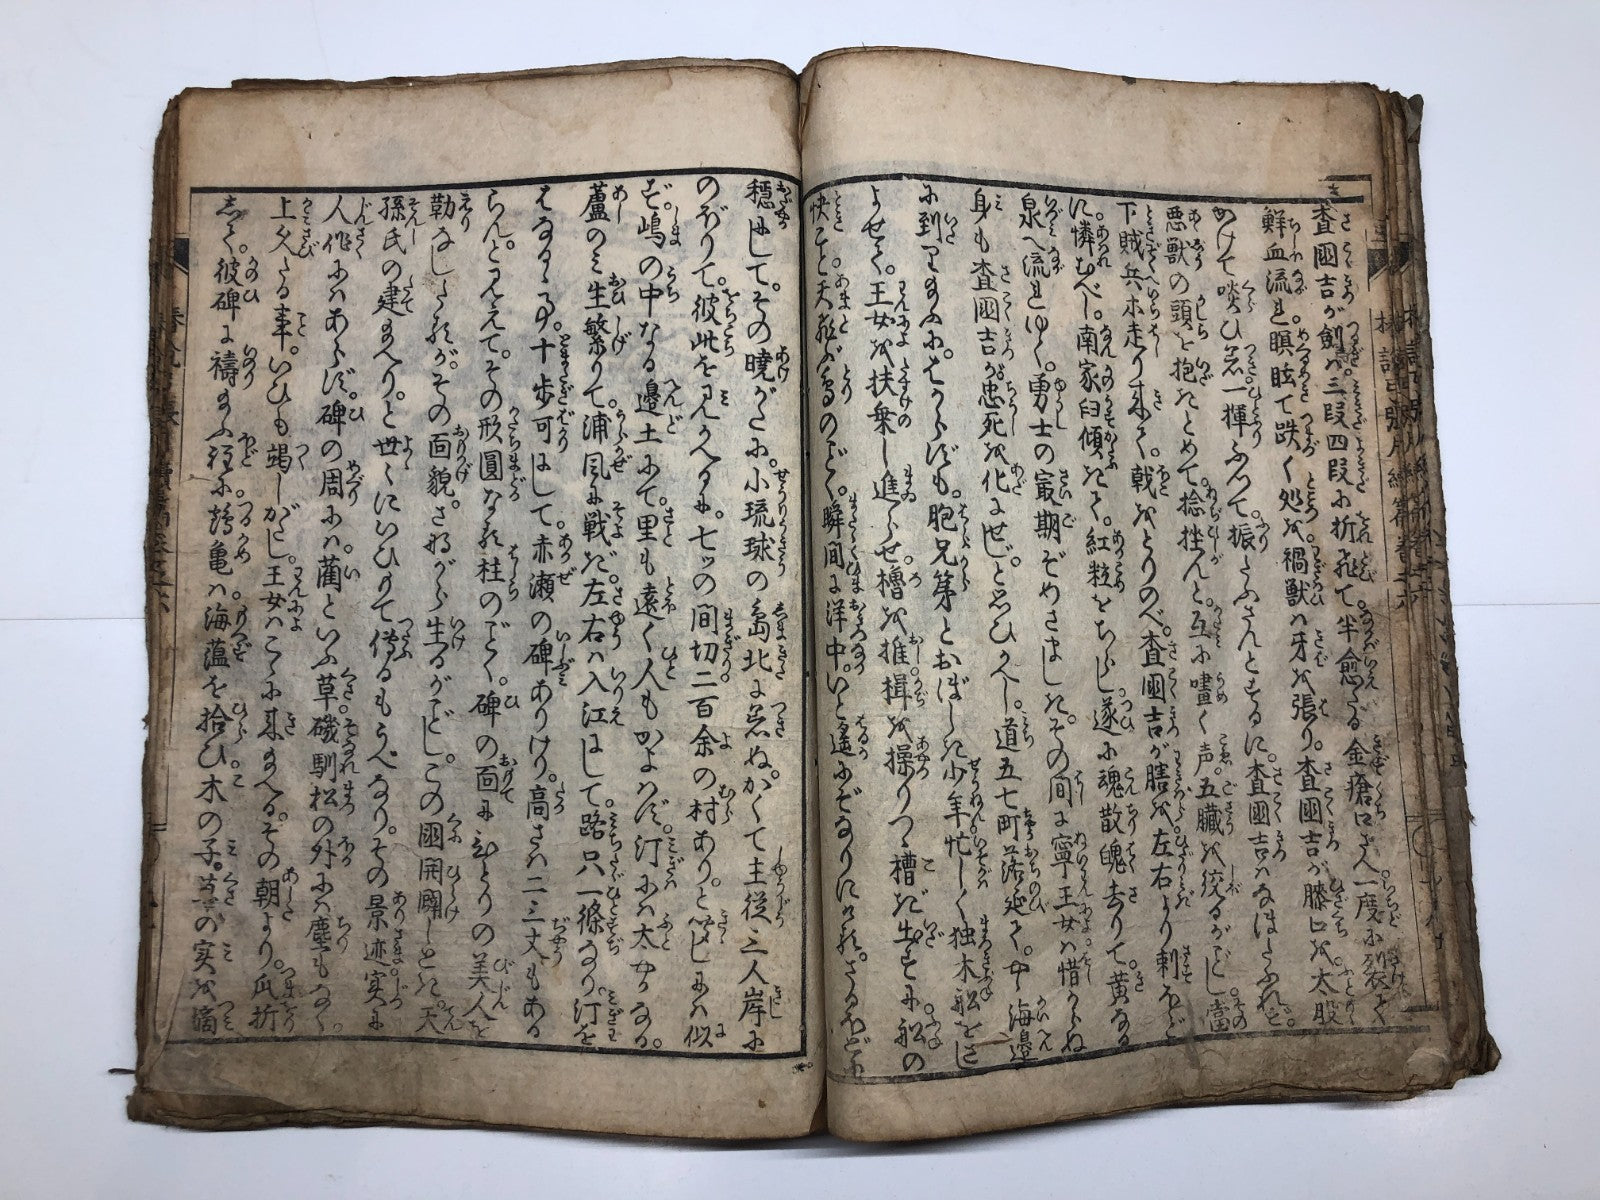 査國吉が劍ハ三段四段に折飛て半愈たる金瘡口さへ一度に裂て
鮮血流れ瞑眩て跌く処を禍獣ハ牙を張り査國吉が膝口を太股
かけて啖ひ著一揮ふつて振たふさんとするに査國吉ハなほたふれず
悪獣の頭を抱きとめて捻挫んと互に嘷く声五臓を絞るがごとし當
下賊兵ホ走り来て戟をとりのべ査國吉が膳を左右より刺ほどに
憐むべし南家臼傾きて紅粒をちらし遂に魂散魄去りて黄なる
泉へ流れゆく勇士の最期ぞめさましきその間に寧王女ハ惜からぬ
身も査國吉が忠死を化にせじと思ひかへし道五七町落延て海邉
に到り給ふにはからずも胞兄弟とおぼしき少年忙しく独木船をさし
よせて王女を扶乗し進らせ櫓を推楫を操りつゝ槽き出すに船の
快こと天飛ぶ鳥のごとく瞬間に洋中いと遥にぞなりにけるさるほどに
穏にしてその曉がたに小琉球の島北に着ぬかくて主従三人岸に
のぼりて彼此を見かへるに七ッの間切二百余の村ありと聞しにハ似
ず嶋の中なる邉土にて里も遠く人もかよハず汀にハ太やかなる
蘆のミ生繁りて浦風に戦ぎ左右ハ入江にして路只一條なり汀を
はなるゝ事十歩可にして赤瀬の碑ありけり高さハ二三丈もある
らんと見えてその形圓なる柱のごとく碑の面にひとりの美人を
勒なしたるがその面貌さながら生るがごとしこの國開闢しとき天
孫氏の建給へりと世々にいひもて傳るもうべなりその景迹実に
人作にハあらず碑の周にハ藺といふ草磯馴松の外にハ塵もなく
上久たる事いひも竭しがたし王女ハこゝに来給へるその朝より爪折
して彼碑に禱給ふ程に鶴亀ハ海薀を拾ひ木の子草の実を摘